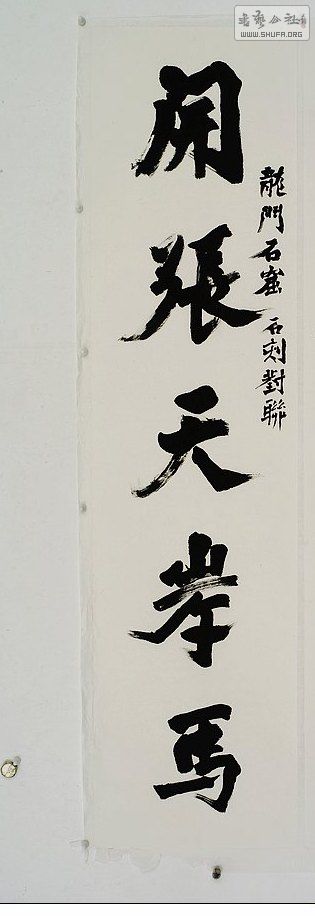 書藝公社
WWW.SHUFA.ORG
龍門石窟石刻對聯
開張天岸馬